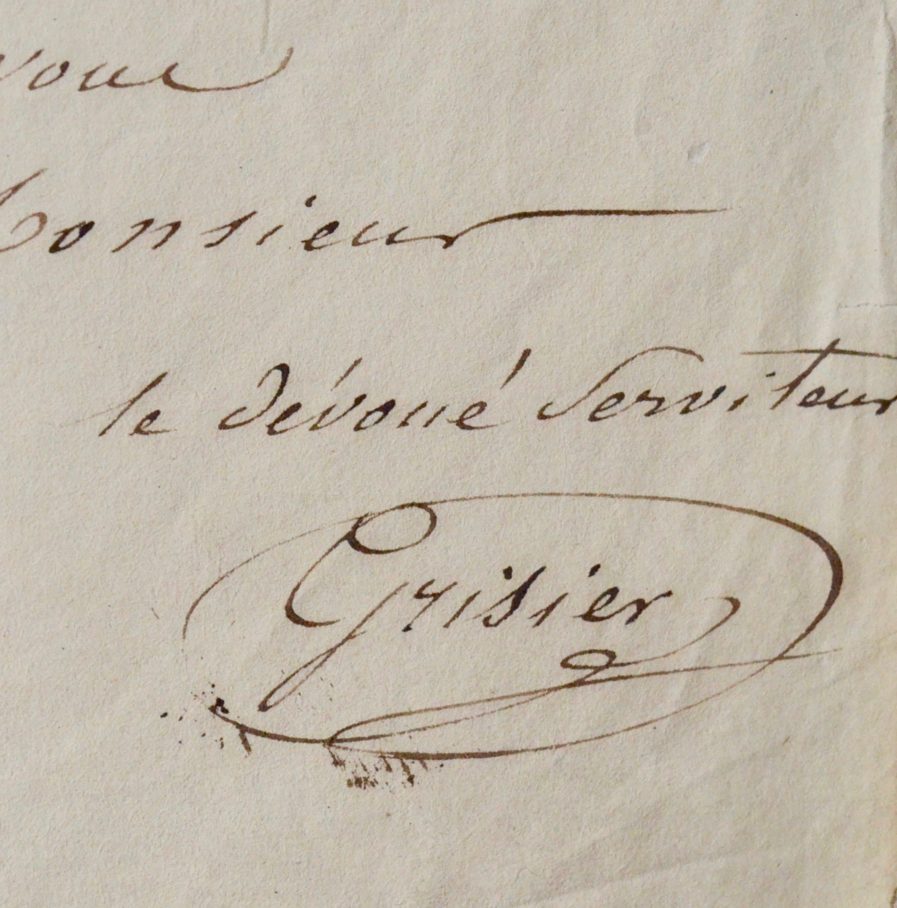 voue
Monsieur
le dévoué Serviteur
Grisier